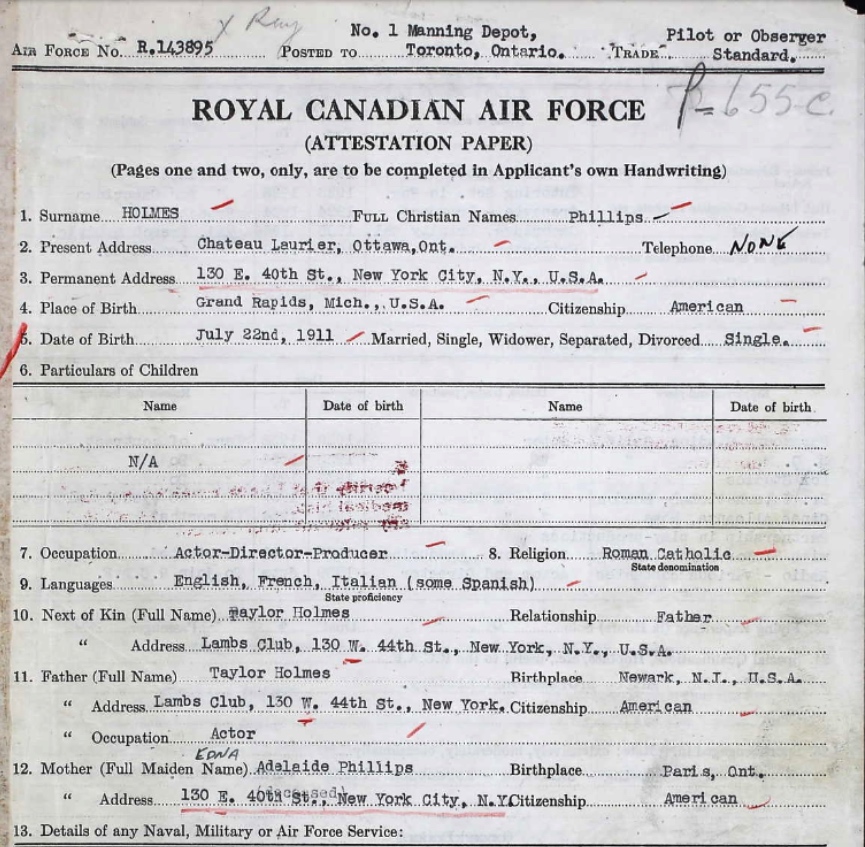 No. 1 Manning Depot, Pilot or Obserger
AIR FORCE NO. R.143895 POSTED TO Toronto, Ontario. TRADE Standard.
ROYAL CANADIAN AIR FORCE
(ATTESTATION PAPER)
(Pages one and two, only, are to be completed in Applicant's own Handwriting)
1. Surname HOLMES FULL Christian Names Phillips
2. Present Address Chateau Laurier, Ottawa,Ont. Telephone NONE
3. Permanent Address 130 E. 40th St., New York City, N.Y., U.S.A.
4. Place of Birth Grand Rapids, Mich., U.S.A. Citizenship American
5. Date of Birth July 22nd, 1911 Married, Single, Widower, Separated, Divorced Single.
6. Particulars of Children
Name Date of birth Name Date of birth
N/A
7. Occupation Actor-Director-Producer 8. Religion Roman Catholic
State denomination
9. Languages English, French, Italian (some Spanish)
State proficiency
10. Next of Kin (Full Name) Taylor Holmes Relationship Father
" Address Lambs Club, 130 W. 44th St., New York, N.Y., U.S.A.
11. Father (Full Name) Taylor Holmes Birthplace Newark, N.J., U.S.A.
" Address Lambs Club, 130 W. 44th St., New York. Citizenship American
" Occupation Actor
EDNA
12. Mother (Full Maiden Name) Adelaide Phillips Birthplace Paris, Ont.
" Address 130 E. 40th St., New York City, N.Y. Citizenship American
13. Details of any Naval, Military or Air Force Service: